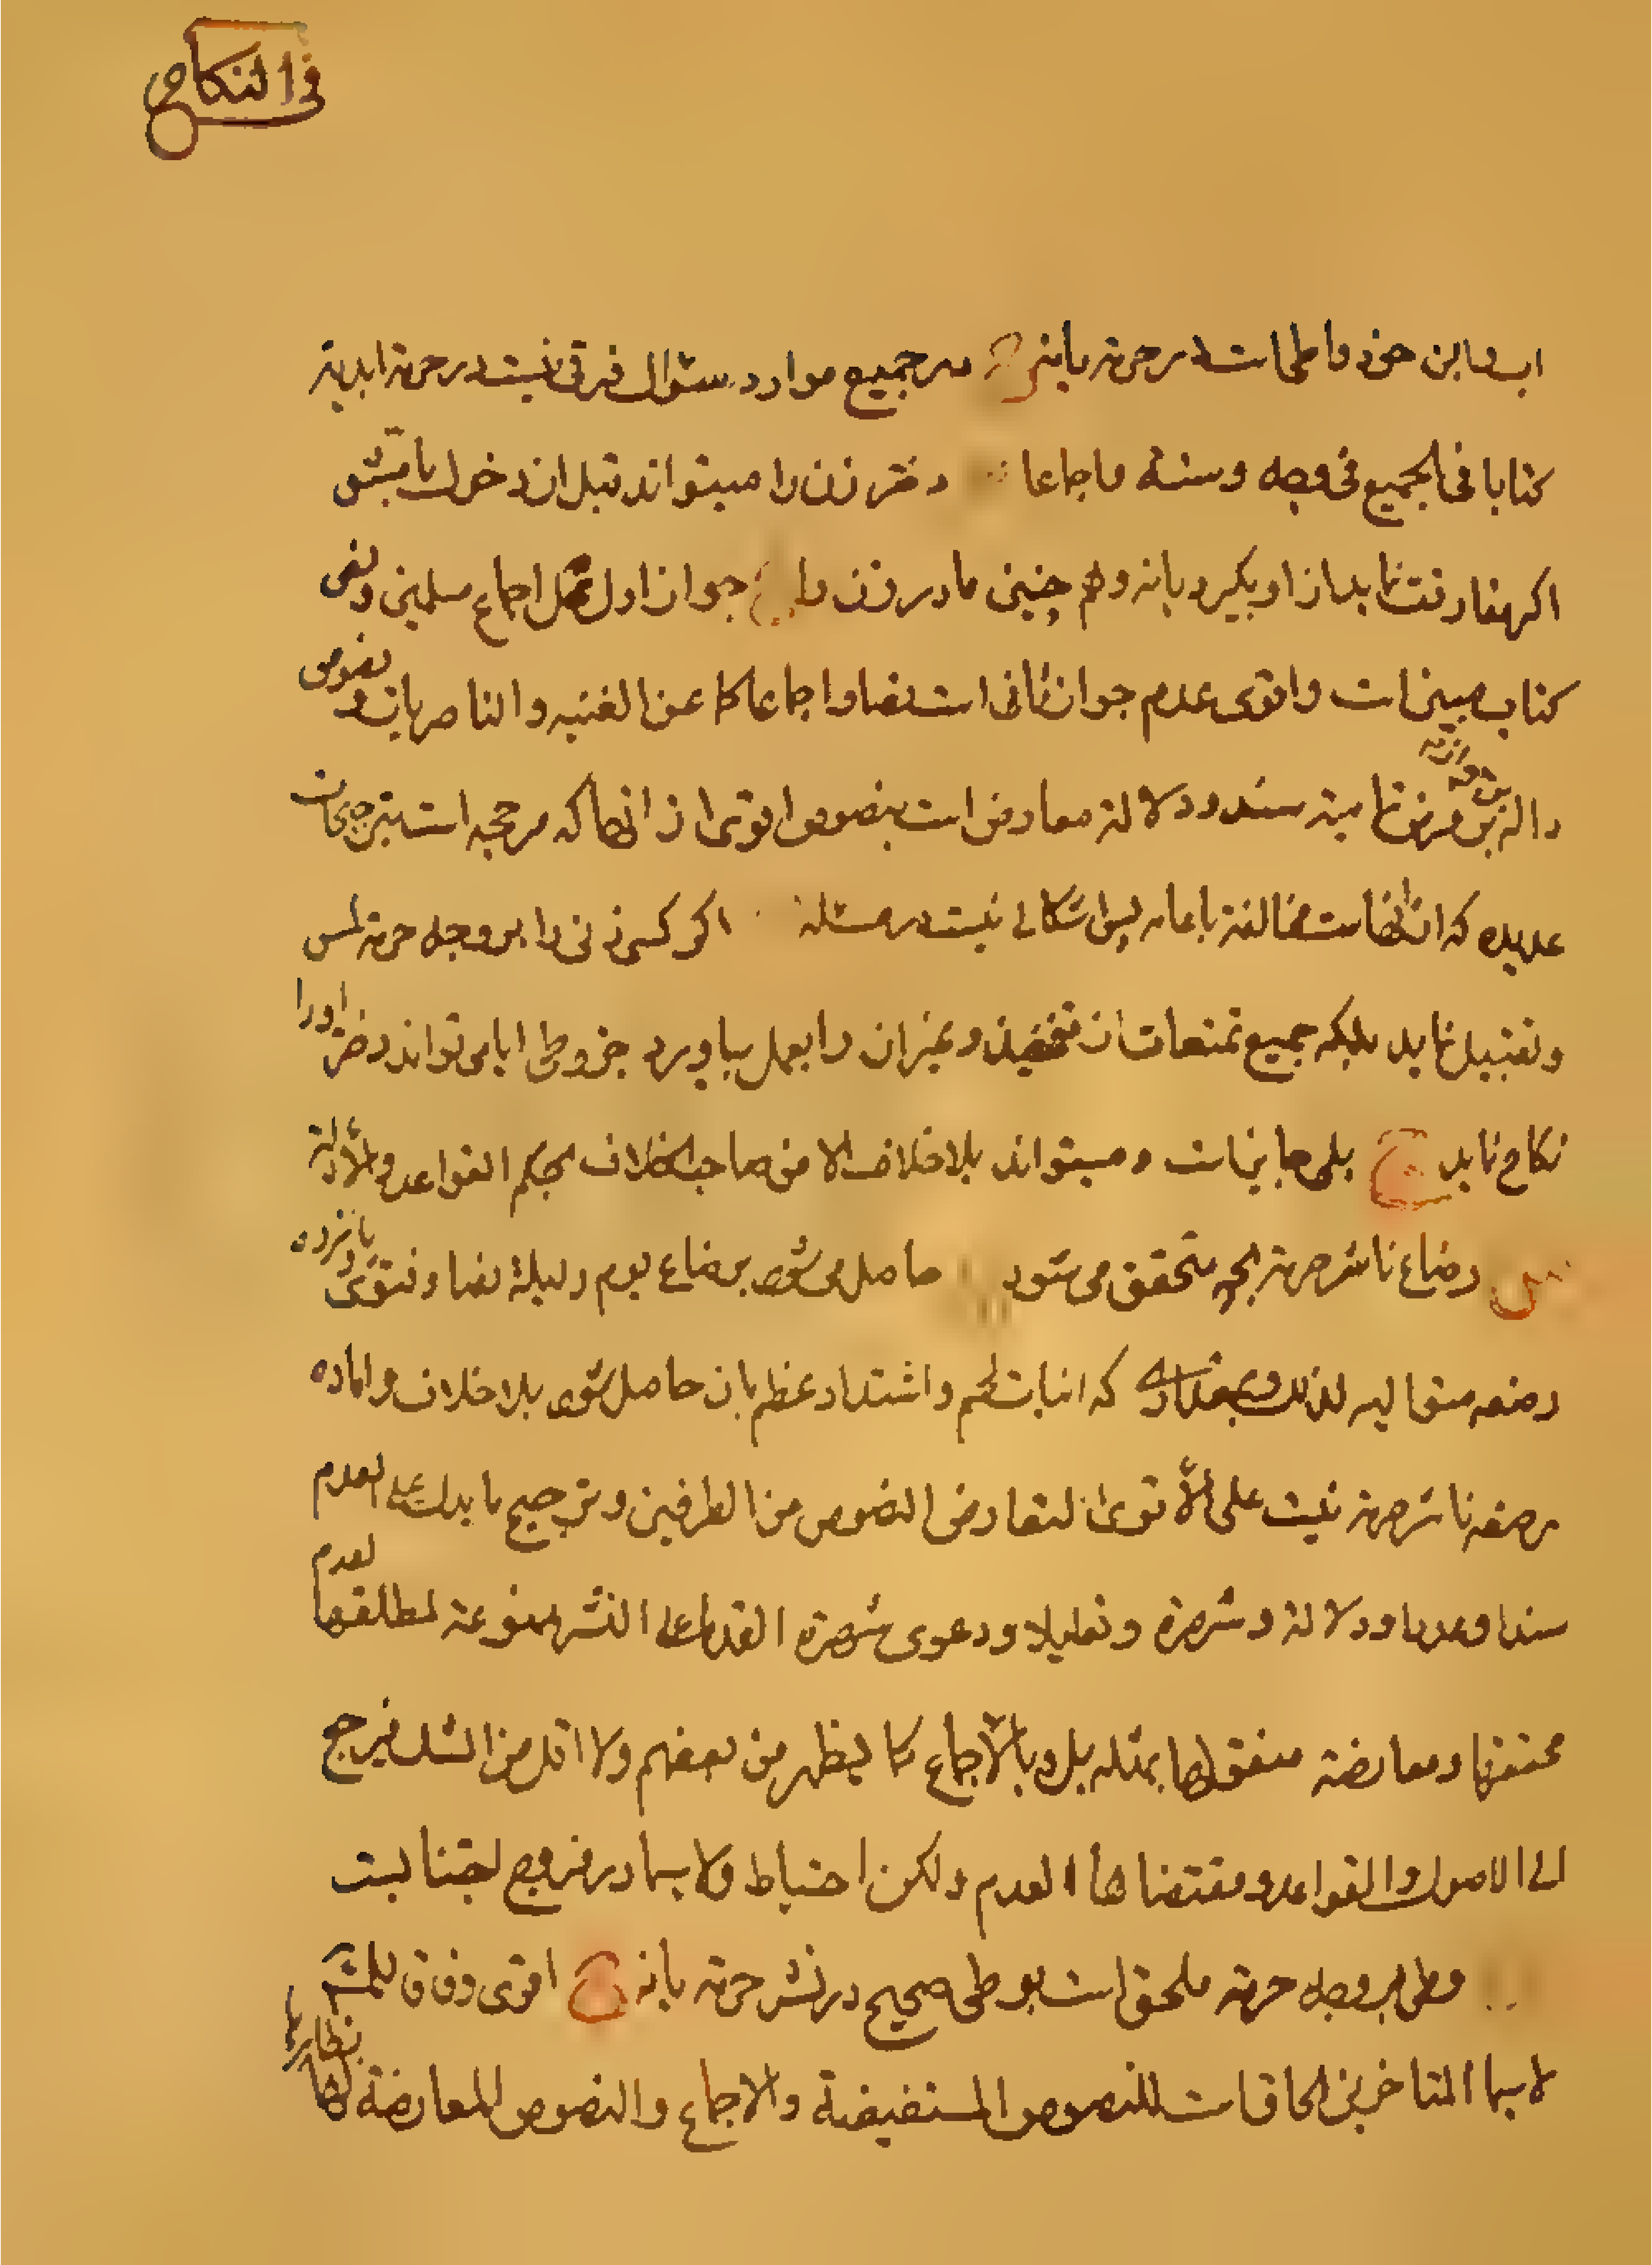 في النكاح
اب و ابن خود واطی است در حرمة یا نه ج در جمیع موارد سئوال فرقی نیست در حرمة ابدیة
کتابا فی الجمیع فی وجه و سنة و اجماعا دختر زن را میتواند قبل از دخول بامش
اکر مفارقت نماید از او بکیرد یا نه و هم چنین مادر زن را ج جواز اول محل اجماع مسلمین و نص
کتاب مبین است و اقوی عدم جواز ثانی است نصا و اجماعا کما عن الغنیه و الناصریات و نصوص
داله بر سندا و دلالة معارض است بنصوص اقوی از انها که مرجحه است بترجیحات
عدیده که از انهاست مخالفة با عامه پس اشکالی نیست در مسئله اکر کسی زنی را بر وجه حرمة لمس
و تقبیل نماید بلکه جمیع تمتعات از تفخیذ و غیر ان را بعمل بیاورد جز وطی ایا می تواند دختر او را
نکاح نماید ج بلی جایز است و میتواند بلا خلاف الا من صاحب الخلاف بحکم القواعد و الأدلة
س رضاع ناشر حرمة بچه متحقق می شود حاصل می شود برضاع یوم و لیلة نصا و فتوی و پانزده
رضعه متوالیه لذلک و بمقداری که انبات لحم و اشتداد عظم بان حاصل شود بلا خلاف و اما ده
رضعه ناشر حرمة نیست علی الأقوی لتعارض النصوص من الطرفین و ترجیح ما یدل علی العدم
سندا و عددا و دلالة و شهرة و تعلیلا و دعوی شهرة القدماء علی النشر ممنوعة لمطلقها لعدم
محققها و معارضة منقولها بمثله بل و بالأجماع کما یظهر من بعضهم و لا اقل من الشک فیرجع
الی الاصول و القواعد و مقتضاها العدم ولکن احتیاط ولا سیما در فروج اجتنابست
وطی بر وجه حرمة ملحق است بوطی صحیح در نشر حرمة یا نه ج اقوی وفاق للمشهر
لا سیما المتاخرین الحاق است للنصوص المستفیضة و الاجماع و النصوص المعارضة لها